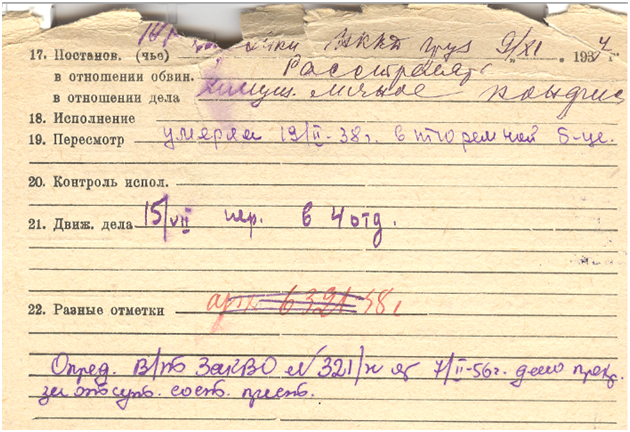 17. Постанов. (чье) НКВД Груз 9/XI 1937 г.
в отношении обвин. Расстрелять
в отношении дела личное конфис
18. Исполнение
19. Пересмотр умерла 19/II-38 г. в тюремной б-це.
20. Контроль испол.
21. Движ. дела 15/VII пер. в 4 отд.
22. Разные отметки арх. 6321 58 г
Опред. В/тр ЗакВО № 321/н от 7/II-56 г. дело прекр.
за отсутв. сост. прест.